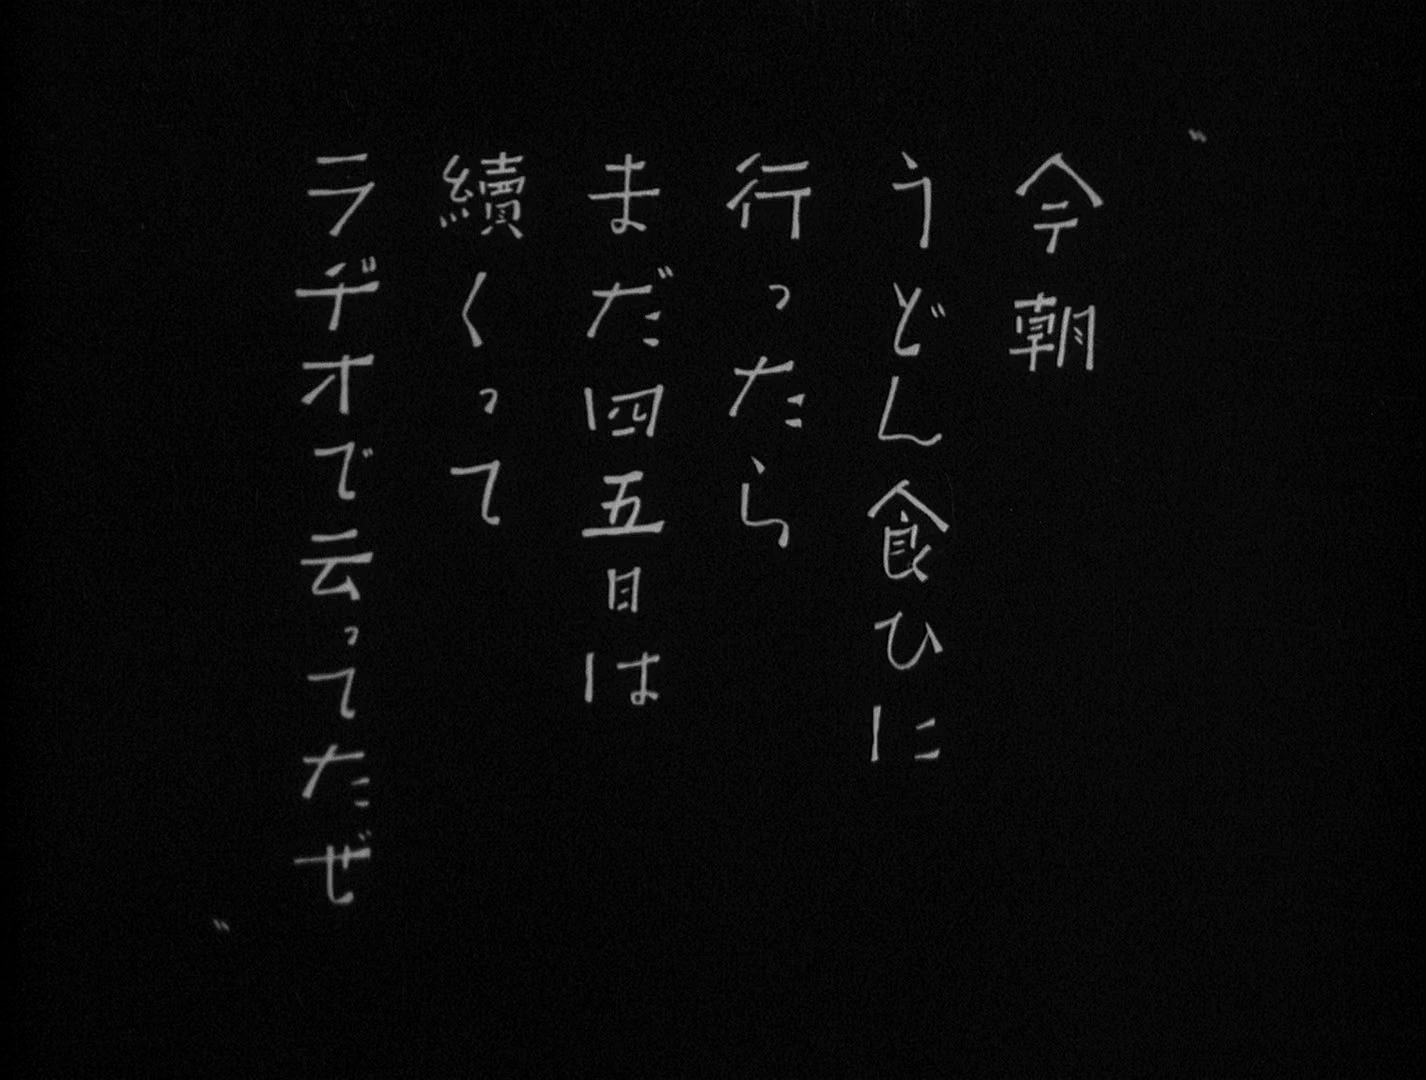 〝今朝
うどん食ひに
行ったら
まだ四五日は
續くって
ラヂオで云ってたぜ〟